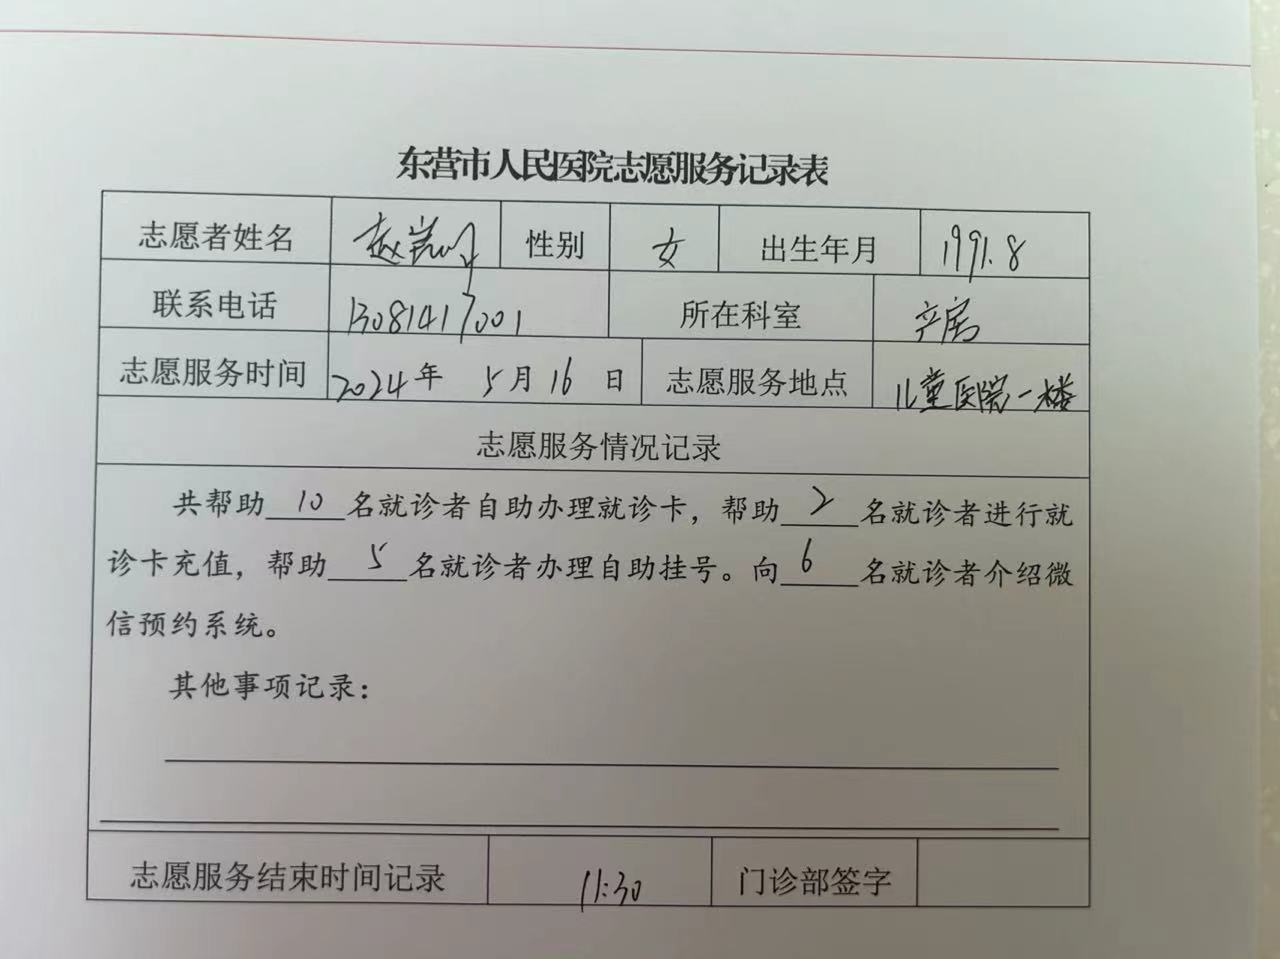 东营市人民医院志愿服务记录表
志愿者姓名 赵 性别 女 出生年月 1991.8
联系电话 13081417001 所在科室 产房
志愿服务时间 2024年 5月16日 志愿服务地点 儿童医院一楼
志愿服务情况记录
共帮助10名就诊者自助办理就诊卡，帮助2名就诊者进行就
诊卡充值，帮助5名就诊者办理自助挂号。向6名就诊者介绍微
信预约系统。
其他事项记录：
志愿服务结束时间记录 11:30 门诊部签字